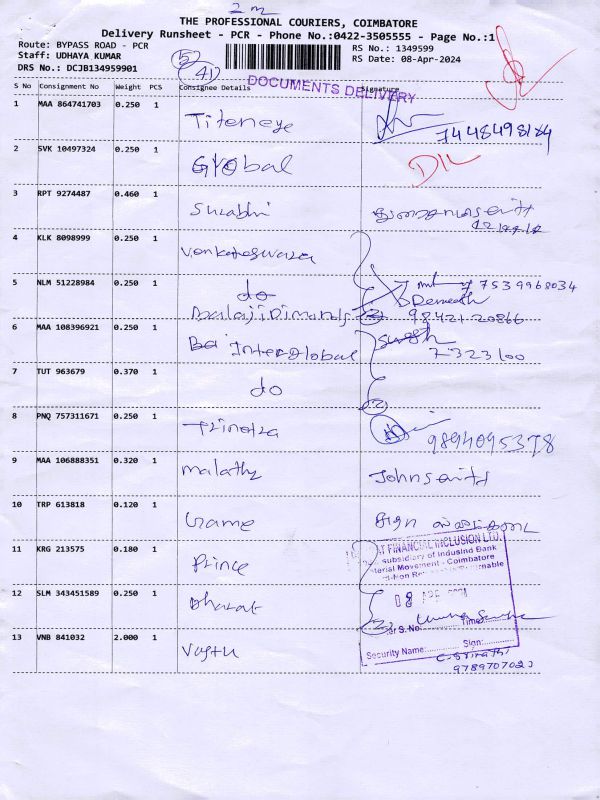 2 m
THE PROFESSIONAL COURIERS, COIMBATORE
Delivery Runsheet - PCR - Phone No.:0422-3505555 - Page No.:1
Route: BYPASS ROAD - PCR
Staff: UDHAYA KUMAR
DRS No.: DCJB134959901
RS No.: 1349599
RS Date: 08-Apr-2024
52
41
DOCUMENTS DELIVERY
S No Consignment No Weight PCS Consignee Details Signature
1 MAA 864741703 0.250 1 Titeneye 7448498184
2 SVK 10497324 0.250 1 Global DIL
3 RPT 9274487 0.460 1 Surabhi
4 KLK 8098999 0.250 1 Venkateswara
5 NLM 51228984 0.250 1 do 7539968034
Balaji Dimands 98421 20866
6 MAA 108396921 0.250 1 InterGlobal Suresh
7323100
7 TUT 963679 0.370 1 do
8 PNQ 757311671 0.250 1 Trinetra 9894095378
9 MAA 106888351 0.320 1 Malathy
10 TRP 613818 0.120 1 Game
11 KRG 213575 0.180 1 Prince
12 SLM 343451589 0.250 1 Bharat
13 VNB 841032 2.000 1 Vastu
FINANCIAL INCLUSION LTD.
subsidiary of IndusInd Bank
Movement - Coimbatore
08 APR
S. No. Time:
Security Name: Sign:
9789707023